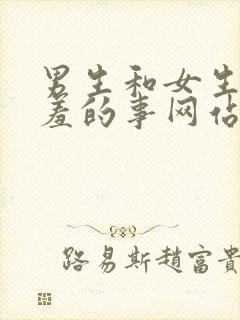 男生和女生
羞的事网佔
路易斯趙富貴